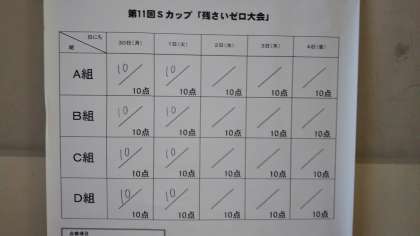 第11回Sカップ「残さいゼロ大会」
日にち 30日(月) 1日(火) 2日(水) 3日(木) 4日(金)
組
A組 10/10点 10/10点 /10点 /10点 /10点
B組 10/10点 10/10点 /10点 /10点 /10点
C組 10/10点 10/10点 /10点 /10点 /10点
D組 10/10点 10/10点 /10点 /10点 /10点